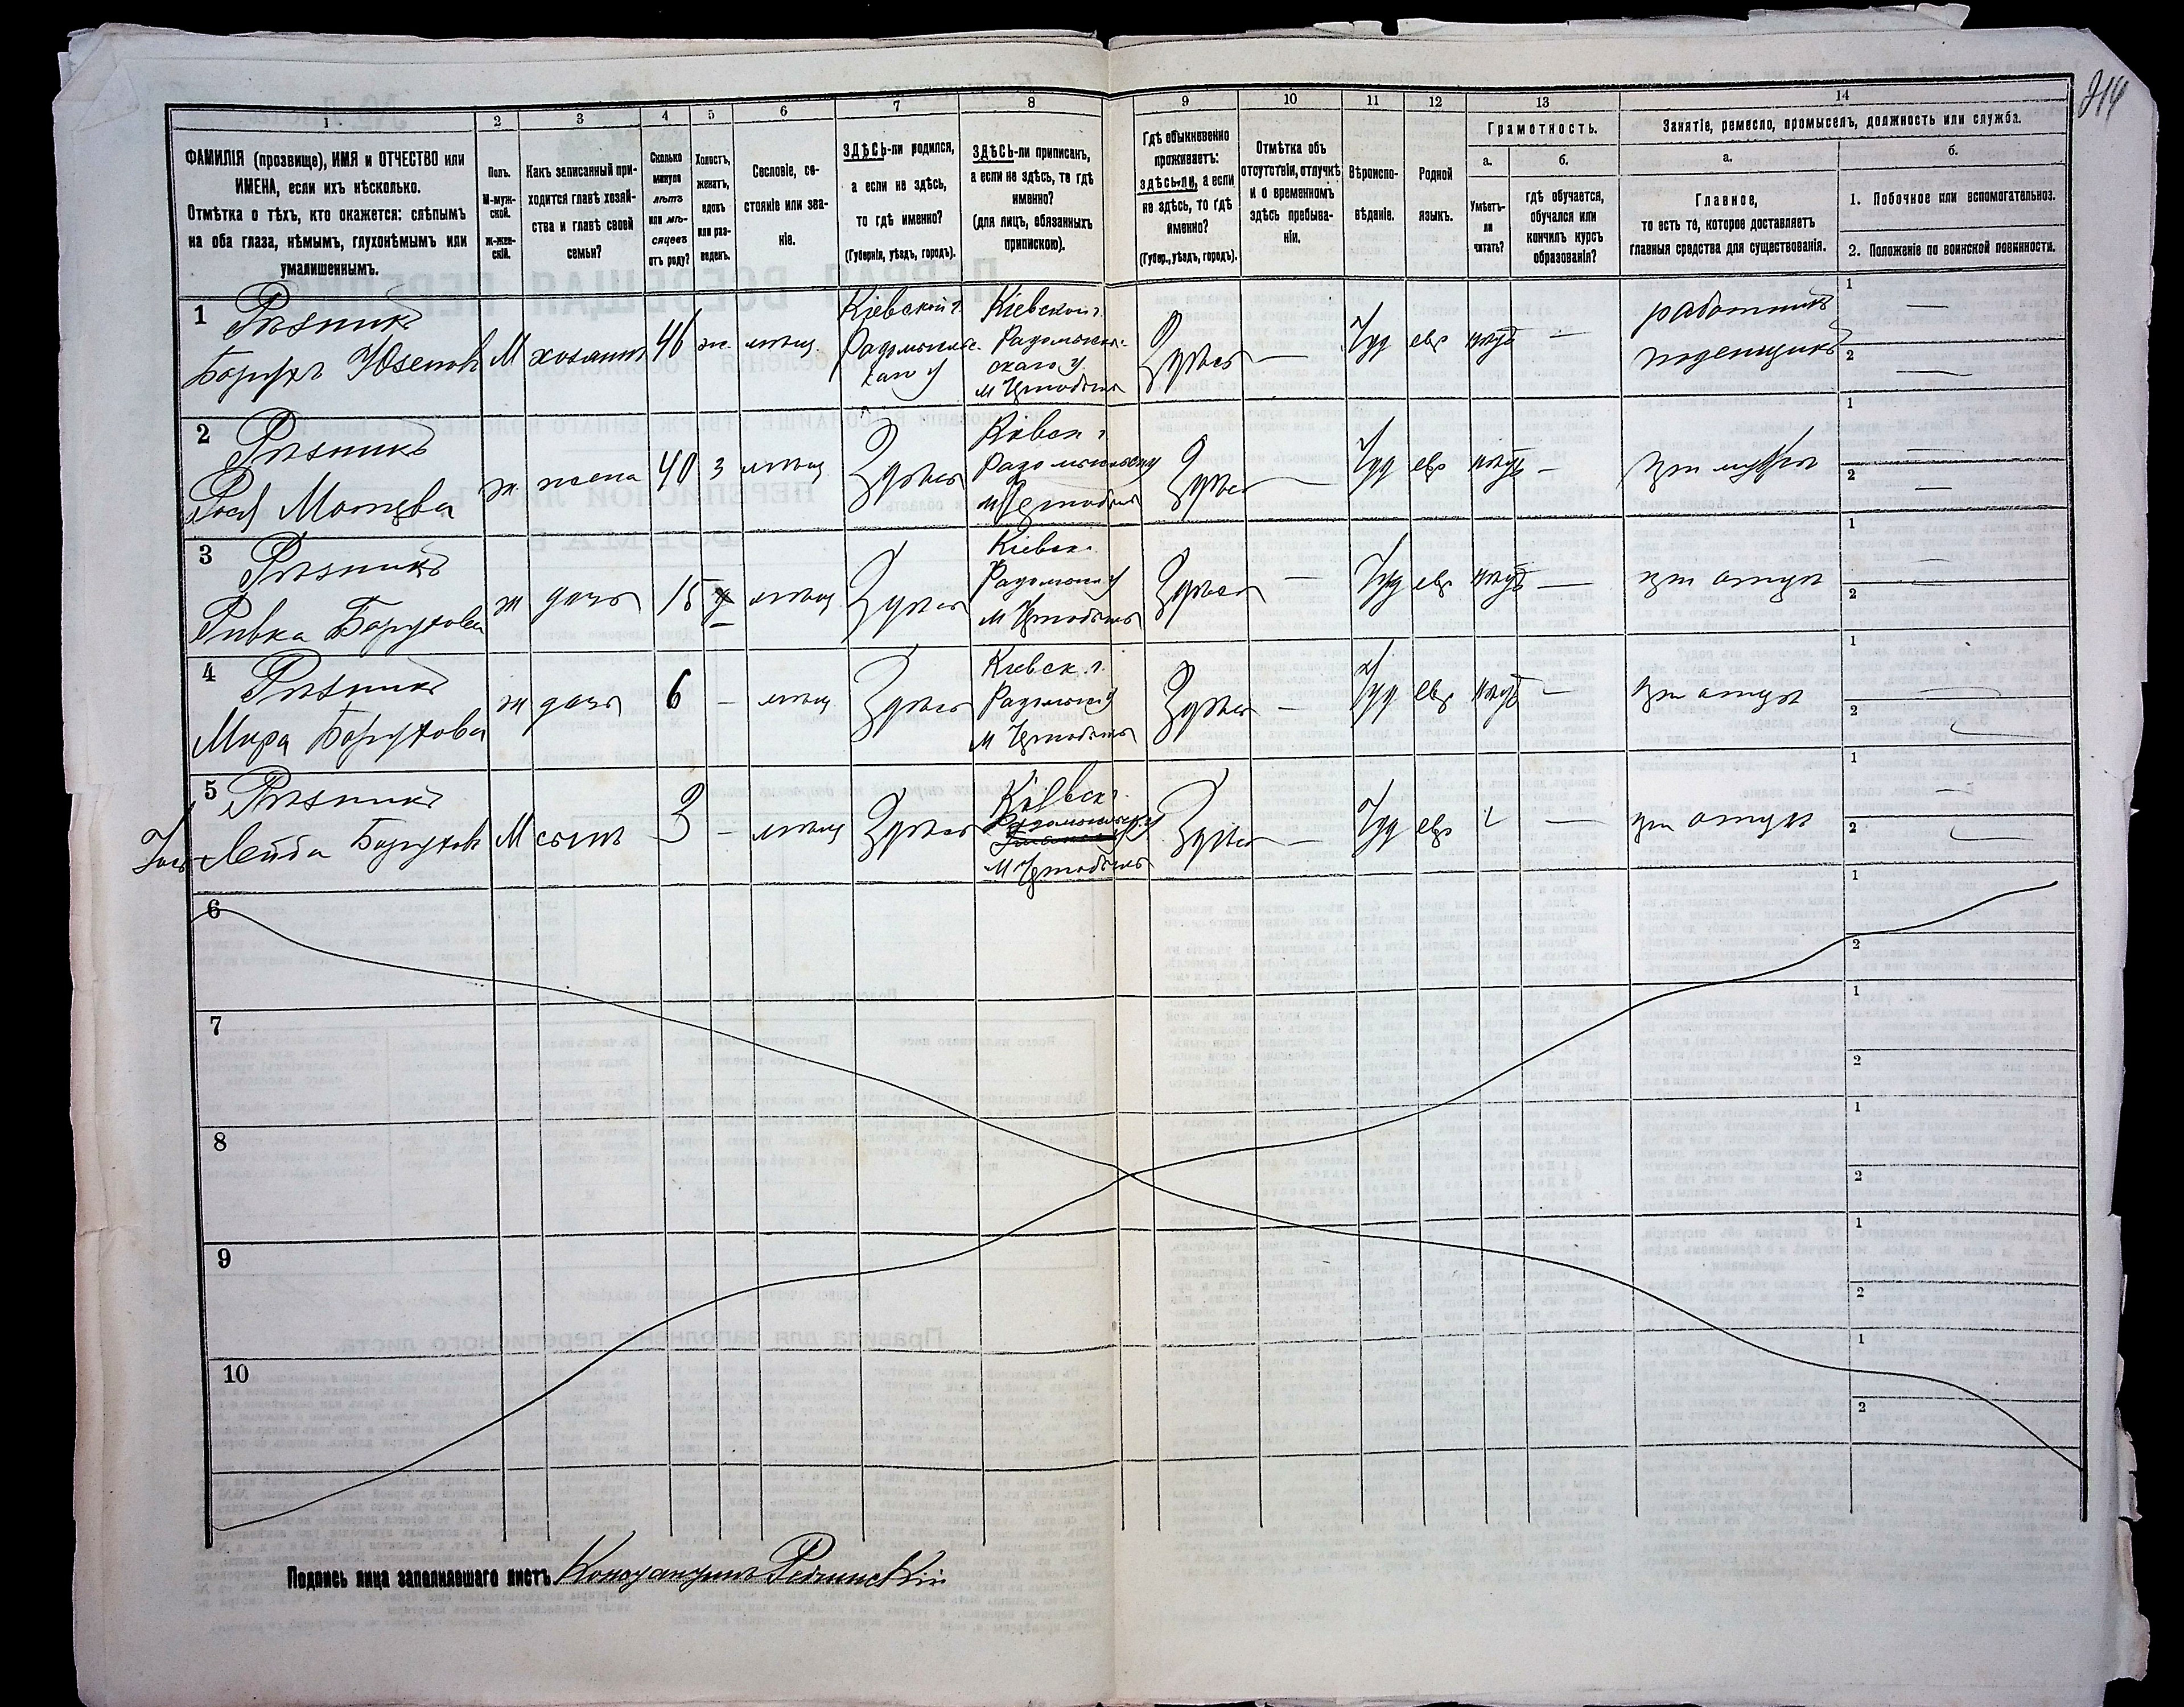 214
1 2 3 4 5 6 7 8 9 10 11 12 13 14
ФАМИЛІЯ (прозвище), ИМЯ и ОТЧЕСТВО или
ИМЕНА, если ихъ нѣсколько.
Отмѣтка о тѣхъ, кто окажется: слѣпымъ
на оба глаза, нѣмымъ, глухонѣмымъ или
умалишеннымъ.
Полъ.
М-муж-
ской.
Ж-жен-
скій.
Какъ записанный при-
ходится главѣ хозяй-
ства и главѣ своей
семьи?
Сколько
минуло
лѣтъ
или мѣ-
сяцевъ
отъ роду?
Холостъ,
женатъ,
вдовъ
или раз-
веденъ.
Сословіе, со-
стояніе или зва-
ніе.
ЗДѢСЬ-ли родился,
а если не здѣсь,
то гдѣ именно?
(Губернія, уѣздъ, городъ).
ЗДѢСЬ-ли приписанъ,
а если не здѣсь, то гдѣ
именно?
(для лицъ, обязанныхъ
припискою).
Гдѣ обыкновенно
проживаетъ:
здѣсь-ли, а если
не здѣсь, то гдѣ
именно?
(Губер., уѣздъ, городъ).
Отмѣтка объ
отсутствіи, отлучкѣ
и о временномъ
здѣсь пребыва-
ніи.
Вѣроиспо-
вѣданіе.
Родной
языкъ.
Грамотность.
а.
Умѣетъ-
ли
читать?
б.
гдѣ обучается,
обучался или
кончилъ курсъ
образованія?
Занятіе, ремесло, промыселъ, должность или служба.
а.
Главное,
то есть то, которое доставляетъ
главныя средства для существованія.
б.
1. Побочное или вспомогательное.
2. Положеніе по воинской повинности.
1 Рѣзникъ
Борухъ Юзеповъ М хозяинъ 46 ж. мѣщ.
Кіевской г.
Радомысльс-
каго у
Кіевской г.
Радомысль-
скаго у.
м Чернобыль
Здѣсь — Іуд евр —
работникъ
поденщикъ
1 —
2 —
2 Рѣзникъ
ж жена 40 з мѣщ Здѣсь
Кіевск г
м Чернобыль
Здѣсь — Іуд евр — при мужѣ
1 —
2 —
3 Рѣзникъ
Ривка Борухова ж дочь 15 мѣщ Здѣсь
Кіевск.
Радомыс у
м Чернобыль
Здѣсь — Іуд евр — при отцѣ
1 —
2 —
4 Рѣзникъ
Мира Борухова ж дочь 6 — мѣщ Здѣсь
Кіевск. г.
Радомыс у
м Чернобыль
Здѣсь — Іуд евр — при отцѣ
1 —
2 —
5 Рѣзникъ
Лейба Боруховъ М сынъ 3 — мѣщ Здѣсь
Кіевск г.
м Чернобыль
Здѣсь — Іуд евр — при отцѣ
1 —
2 —
6
1
2
7
1
2
8
1
2
9
1
2
10
1
2
Подпись лица заполнявшаго листъ